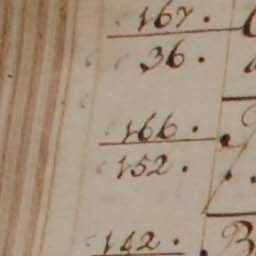 167.
36.
166.
152.
142.
B